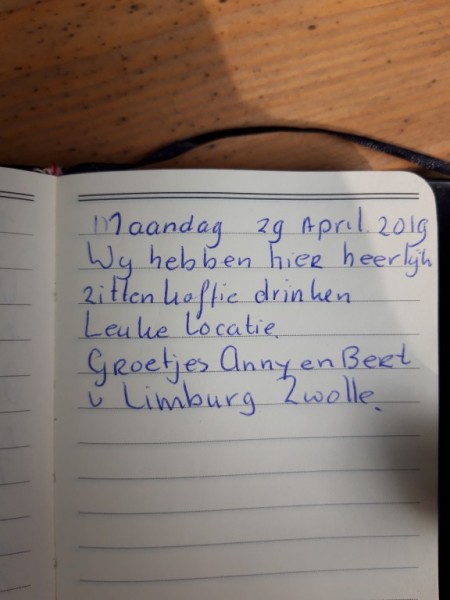 Maandag 29 April 2019
Wy hebben hier heerlijk
zitten koffie drinken
Leuke Locatie.
Groetjes Anny en Bert
v Limburg Zwolle.